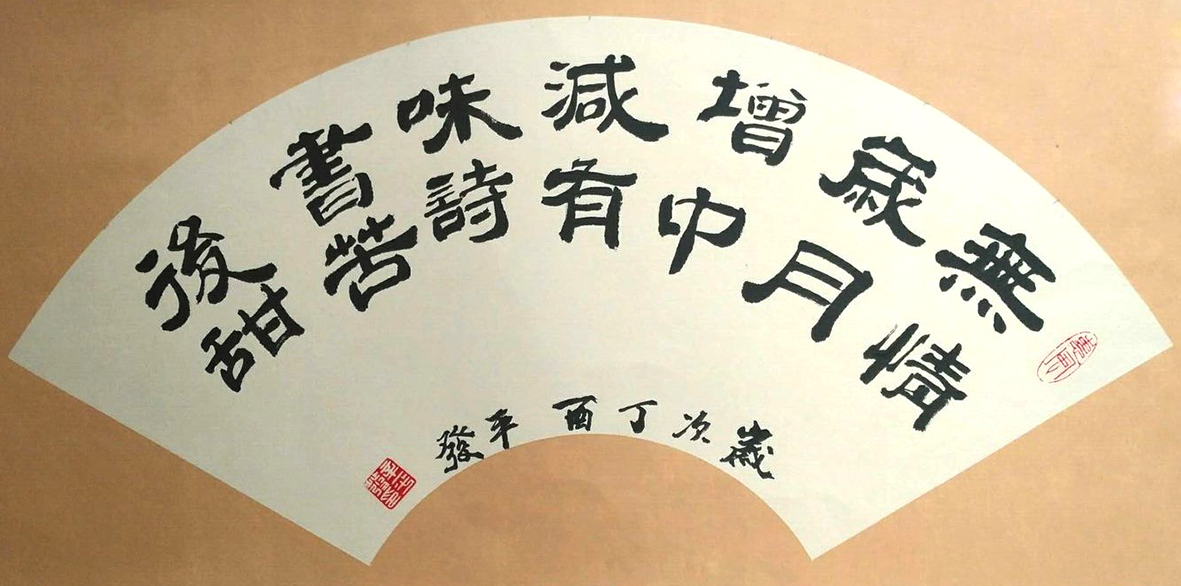 無情
歲月
增中
減有
味詩
書苦
後甜
歲次丁酉 平發